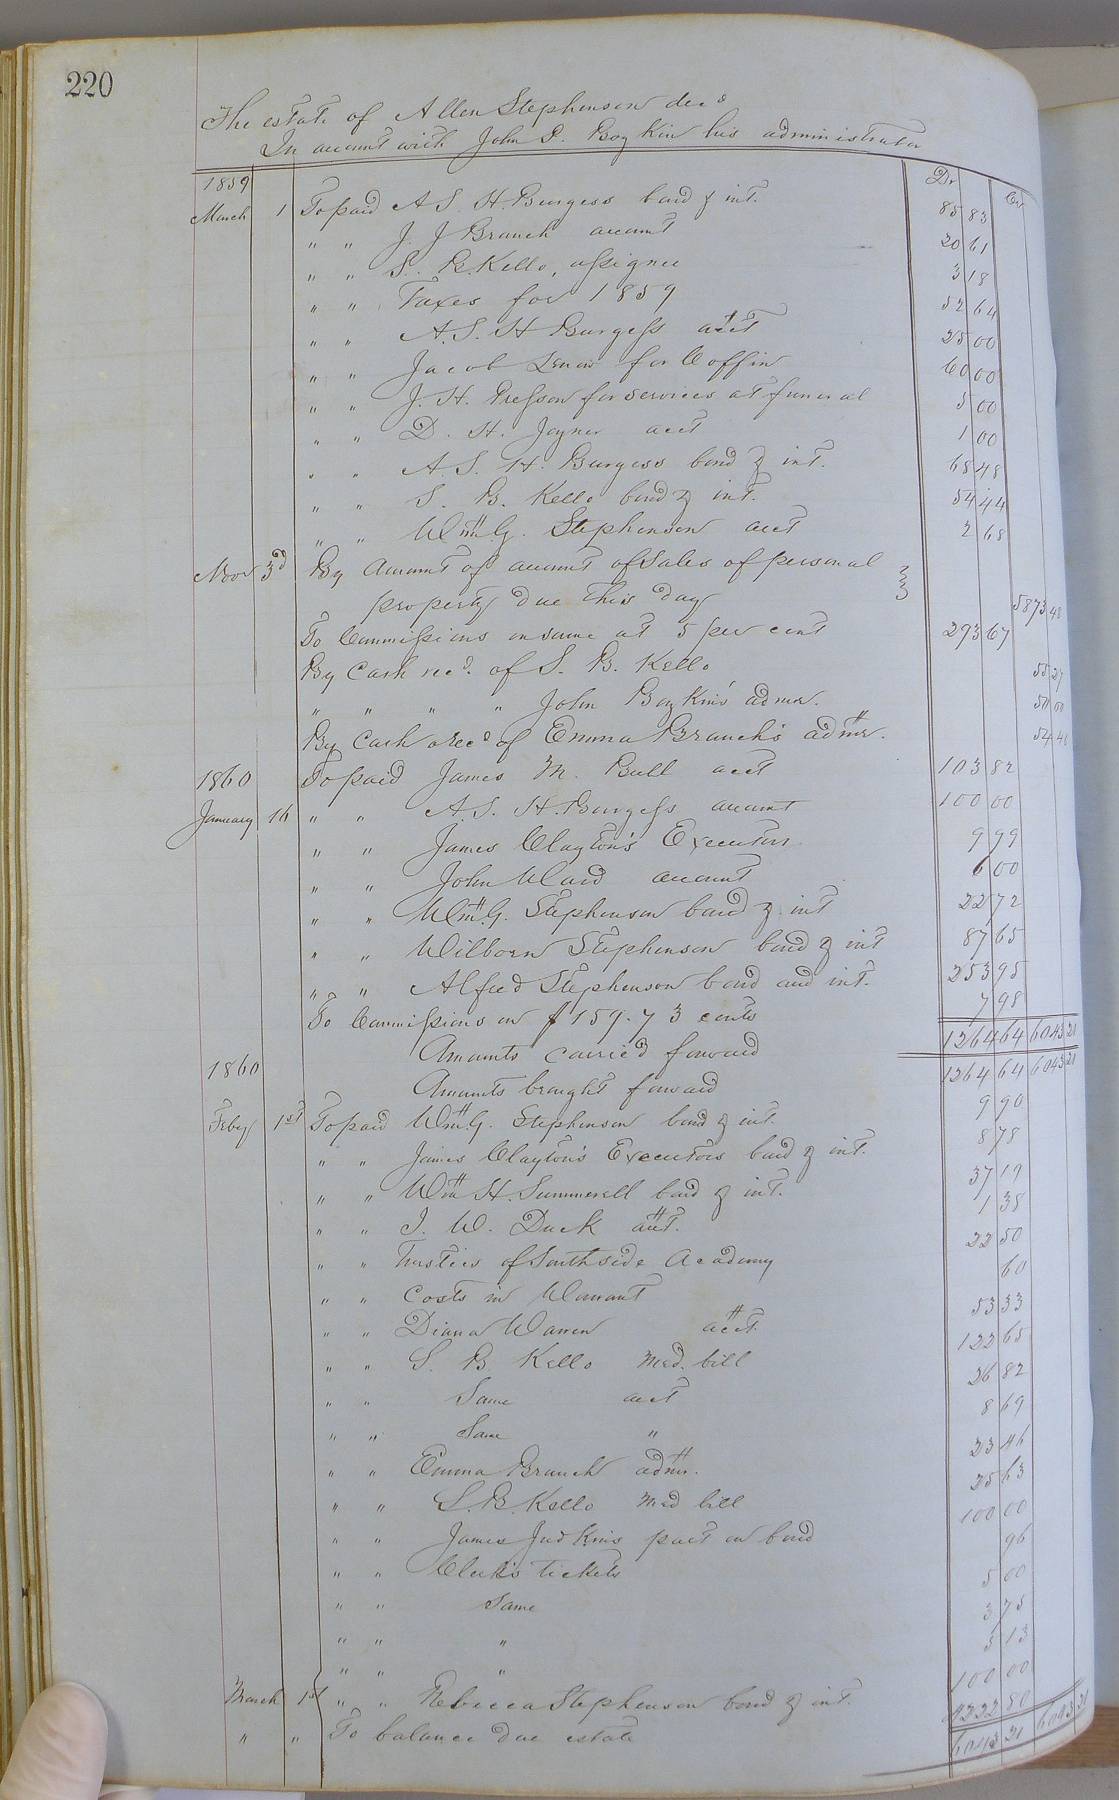 220
The estate of Allen Stephenson decd
In account with John D. Boykin his administrator
Dr Cr
1859
March 1 To paid A. S. H. Burgess bond & int. 85 83
" " J. J Branch account 20 61
" " S. B. Kello, assignee 3 18
" " Taxes for 1859 52 64
" " A. S. H Burgess acct 25 00
" " Jacob for Coffin 60 00
" " J. H. Presson for services at funeral 5 00
" " D. H. Joyner acct 1 00
" " A. S. H. Burgess bond & int. 65 48
" " S. B. Kello bond & int. 54 44
" " Wm. G. Stephenson acct 2 68
Nov 3d By Amount of account of Sales of personal
property due this day 5873 48
To Commissions on same at 5 per cent 293 67
By Cash recd. of S. B. Kello 55 27
" " " " John Boykin's admr. 50 00
By Cash Recd of Emma Branch's admr. 54 46
1860 To paid James M. Bull acct 103 82
January 16 " " A. S. H. Burgess account 100 00
" " James Clayton's Executors 9 99
" " John Ward account 6 00
" " Wm. G. Stephenson bond & int 22 72
" " Wilborn Stephenson bond & int 87 65
" " Alfred Stephenson bond and int. 253 95
To Commissions on $159.73 cents 7 98
Amounts carried forward 1264 64 6043 21
1860
Amounts brought forward 1264 64 6043 21
Feby 1st To paid Wm. G. Stephenson bond & int. 9 90
" " James Clayton's Executors bond & int. 8 78
" " Wm H. Summerell bond & int. 37 19
" " J. W. Duck acct. 1 38
" " Trustees of Southside Academy 22 50
" " Costs in Warrant 60
" " Diana Warren acct. 53 33
" " S. B Kello Med. bill 122 65
" " Same acct 26 82
" " Same " 8 69
" " Emma Branch admr. 23 46
" " S. B. Kello Med bill 25 63
" " James Judkins part on bond 100 00
" " Clerk's tickets 96
" " Same 5 00
" " " 3 75
" " " 5 13
March 1st " " Rebecca Stephenson bond & int. 100 00
" " To balance due estate 4222 80
6043 21 6043 21